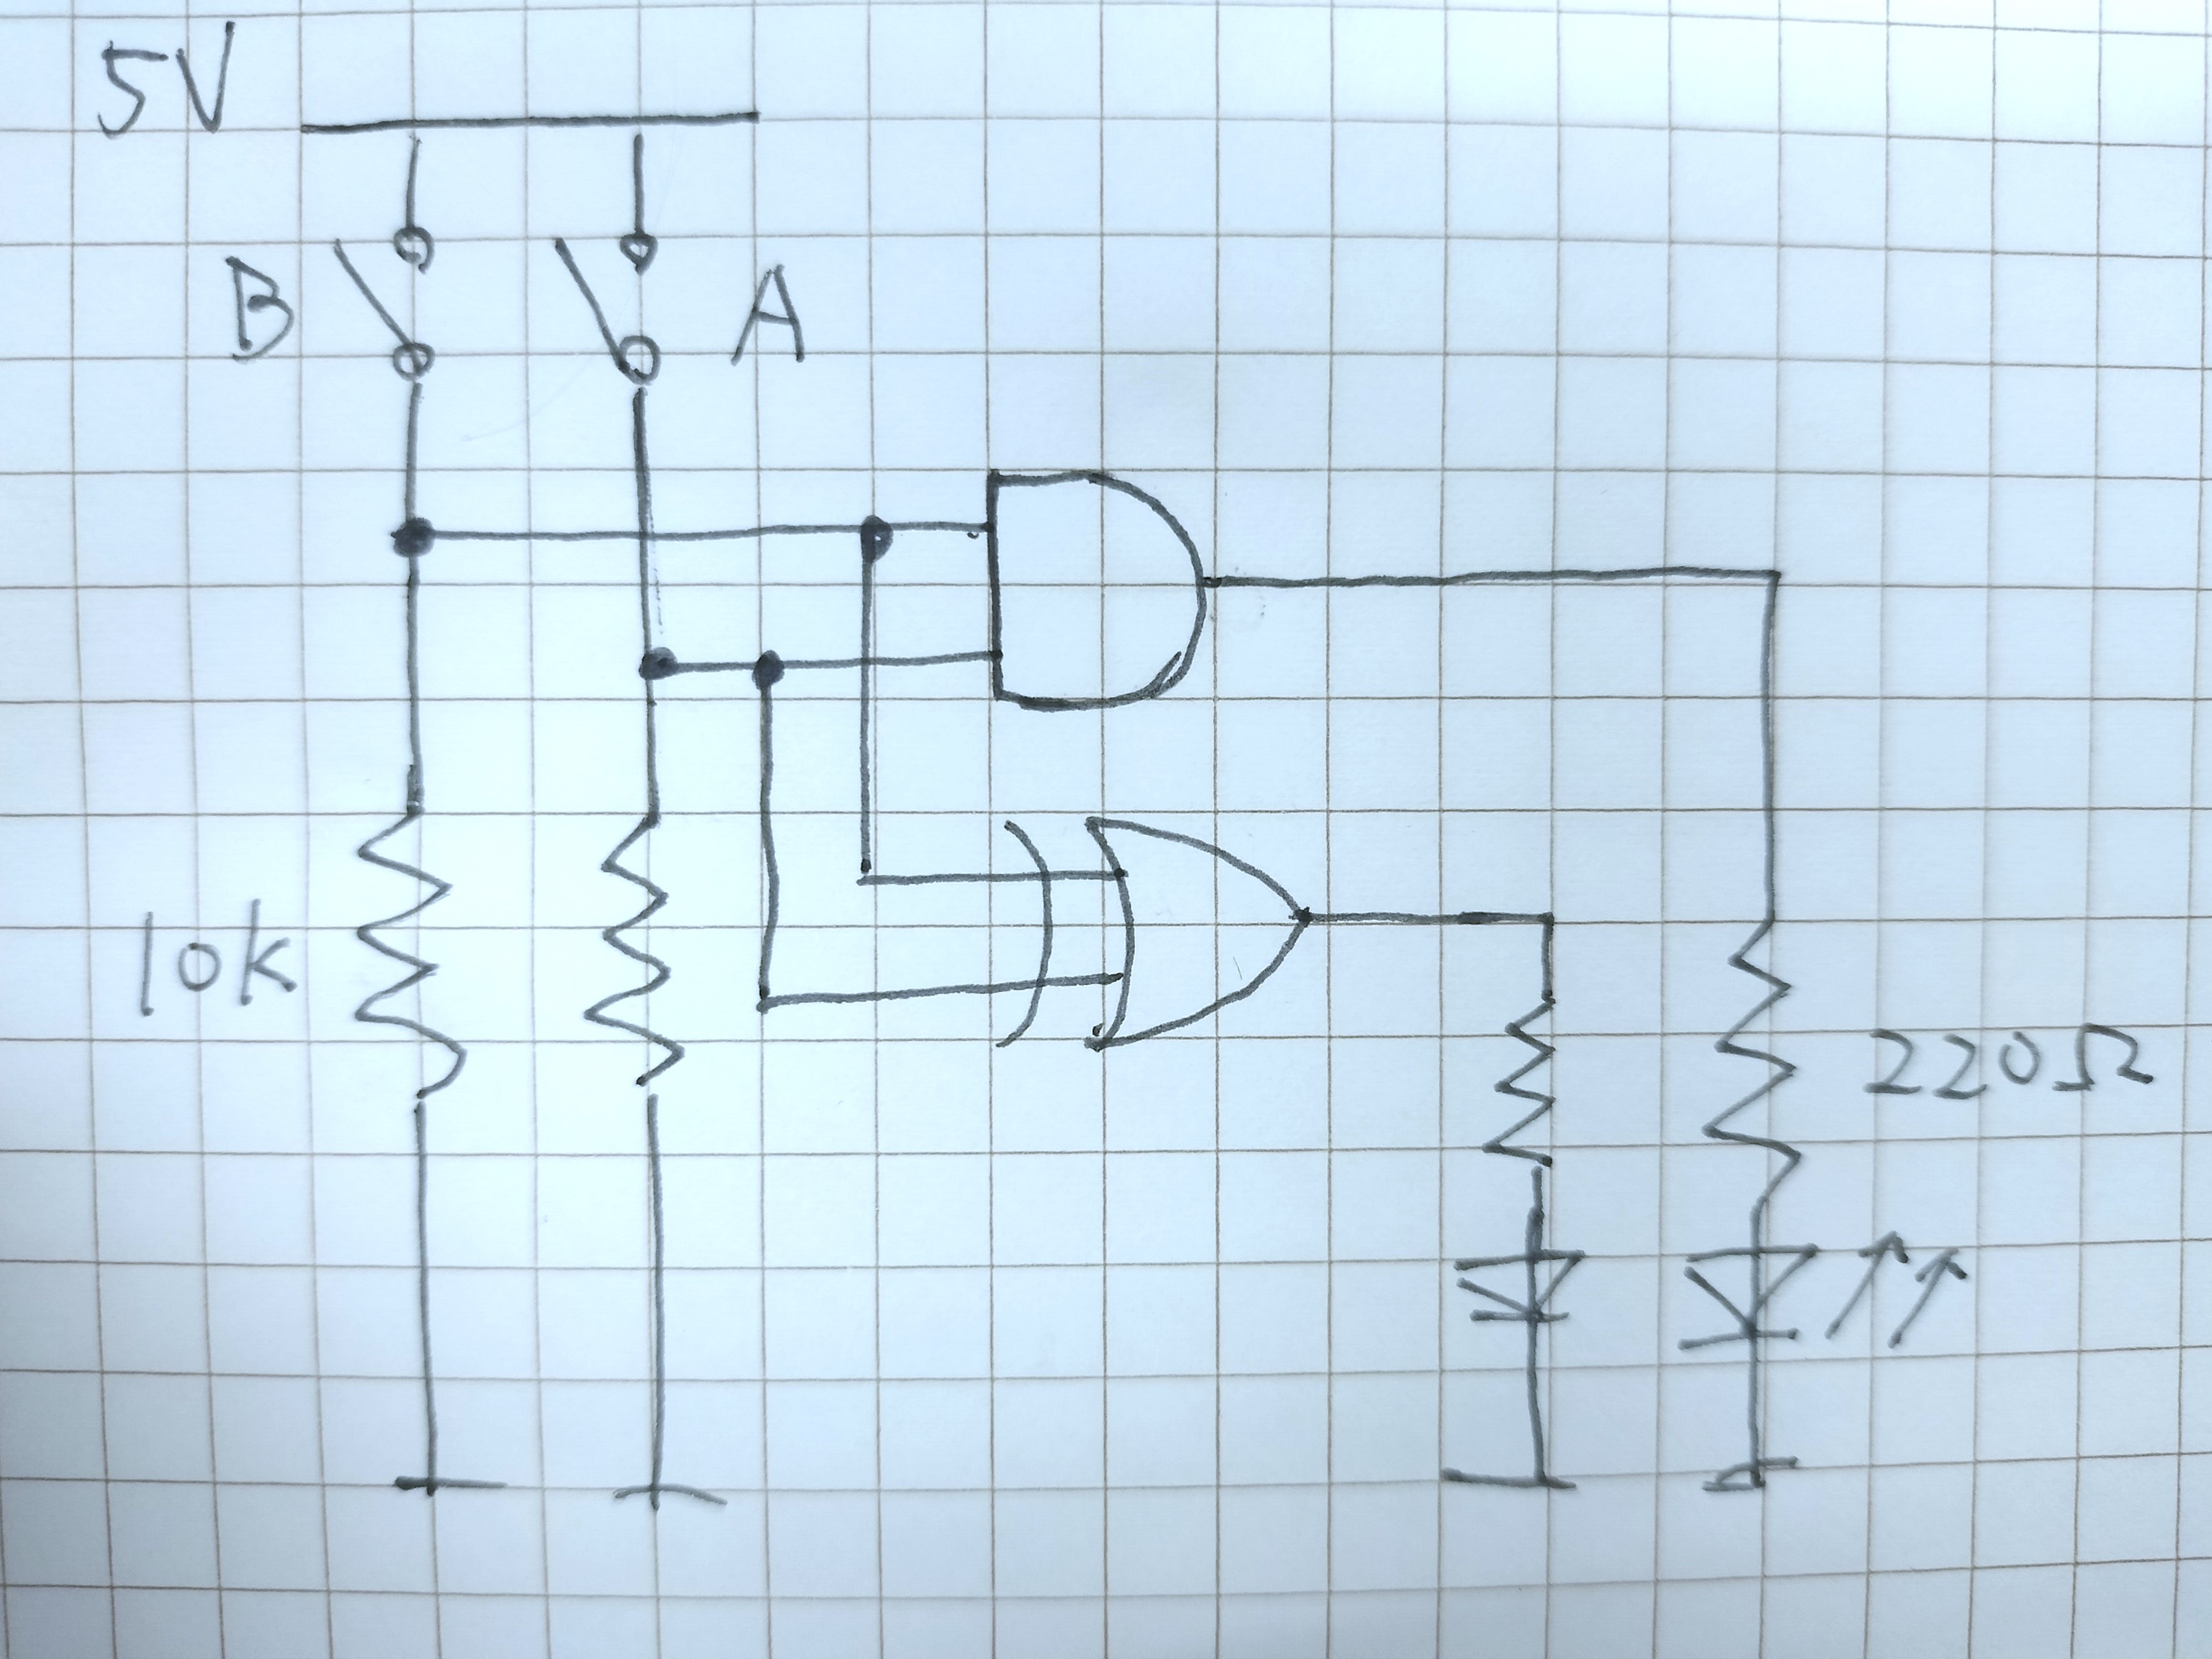 5V
B
A
10k
220Ω